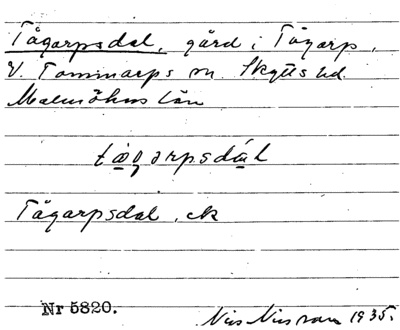 Tågarpsdal, gård i Tågarp,
V. Tommarps sn. Skytts hd.
Malmöhus län
tågarpsdál
Tågarpsdal, ek
Nr 5820.
Nils Nilsson 1935.